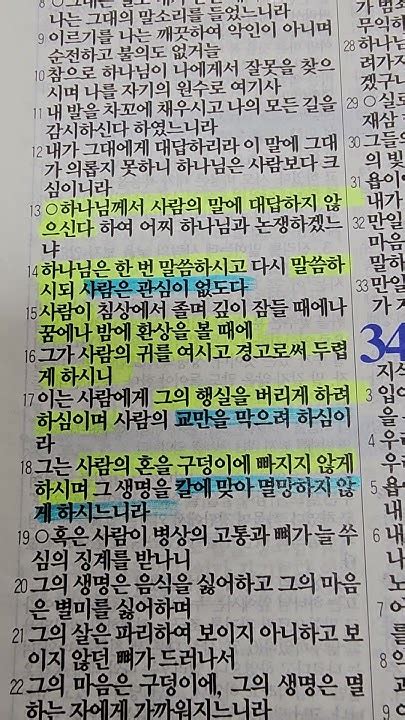 8
나는 그대의 말소리를 들었느니라
9 이르기를 나는 깨끗하여 악인이 아니며
순전하고 불의도 없거늘
10 참으로 하나님이 나에게서 잘못을 찾으
시며 나를 자기의 원수로 여기사
11 내 발을 차꼬에 채우시고 나의 모든 길을
감시하신다 하였느니라
12 내가 그대에게 대답하리라 이 말에 그대
가 의롭지 못하니 하나님은 사람보다 크
심이니라
13 ○하나님께서 사람의 말에 대답하지 않
으신다 하여 어찌 하나님과 논쟁하겠느
냐
14 하나님은 한 번 말씀하시고 다시 말씀하
시되 사람은 관심이 없도다
15 사람이 침상에서 졸며 깊이 잠들 때에나
꿈에나 밤에 환상을 볼 때에
16 그가 사람의 귀를 여시고 경고로써 두렵
게 하시니
17 이는 사람에게 그의 행실을 버리게 하려
하심이며 사람의 교만을 막으려 하심이
라
18 그는 사람의 혼을 구덩이에 빠지지 않게
하시며 그 생명을 칼에 맞아 멸망하지 않
게 하시느니라
19 ○혹은 사람이 병상의 고통과 뼈가 늘 쑤
심의 징계를 받나니
20 그의 생명은 음식을 싫어하고 그의 마음
은 별미를 싫어하며
21 그의 살은 파리하여 보이지 아니하고 보
이지 않던 뼈가 드러나서
22 그의 마음은 구덩이에, 그의 생명은 멸
하는 자에게 가까워지느니라
가 범죄
무익하
28 하나님
려가지
겠구나
29 ○실로
재삼
30 그들의
의 빛
31 욥이여
내가
32 만일
마음
말하
33 만일
가
34
지식
3 입이
4 우리
우리
5 욥이
내
6 내
나
노
7 어
를
8 악
9